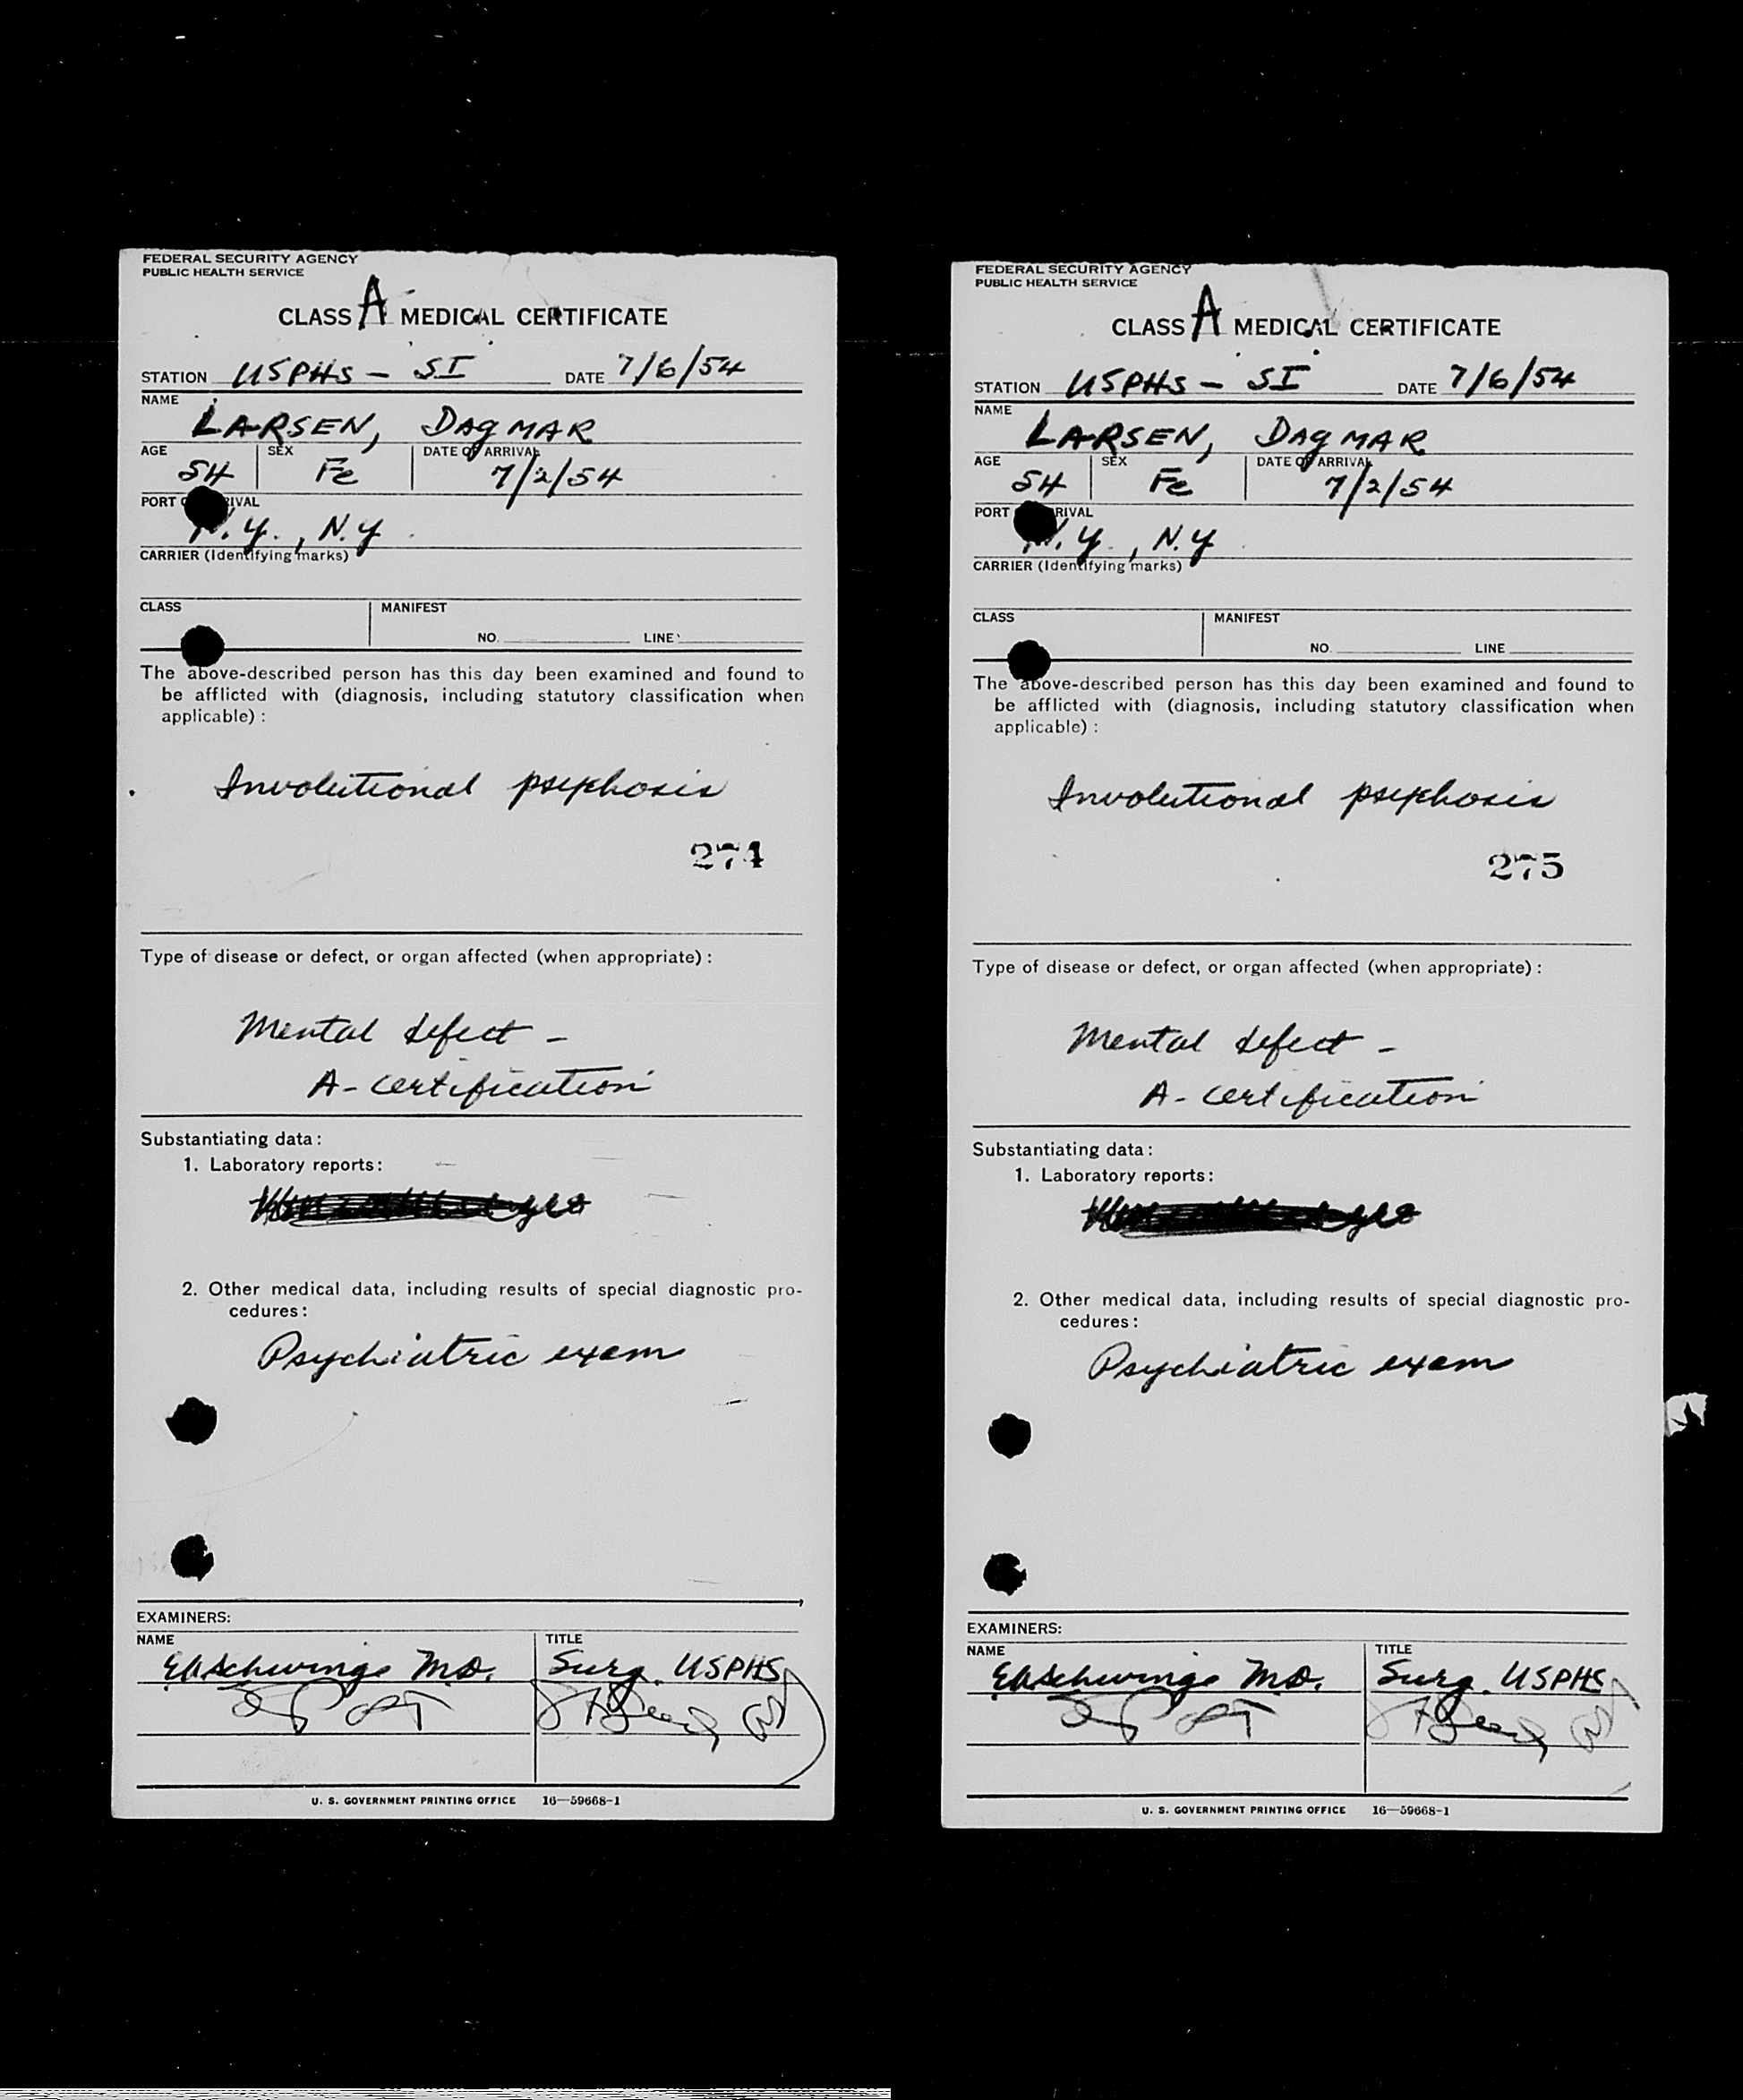 FEDERAL SECURITY AGENCY
PUBLIC HEALTH SERVICE
CLASS A MEDICAL CERTIFICATE
STATION USPHS - SI DATE 7/6/54
NAME
LARSEN, DAGMAR
AGE SEX DATE OF ARRIVAL
54 Fe 7/2/54
PORT
N.Y., N.Y.
CARRIER (Identifying marks)
CLASS MANIFEST
NO. LINE
The above-described person has this day been examined and found to
be afflicted with (diagnosis, including statutory classification when
applicable):
Involutional psychosis
274
Type of disease or defect, or organ affected (when appropriate):
Mental defect -
A- certification
Substantiating data:
1. Laboratory reports:
2. Other medical data, including results of special diagnostic pro-
cedures:
Psychiatric exam
EXAMINERS:
NAME TITLE
M.D. Surg. USPHS
U. S. GOVERNMENT PRINTING OFFICE 16—59668-1
FEDERAL SECURITY AGENCY
PUBLIC HEALTH SERVICE
CLASS A MEDICAL CERTIFICATE
STATION USPHS - SI DATE 7/6/54
NAME
LARSEN, DAGMAR
AGE SEX DATE OF ARRIVAL
54 Fe 7/2/54
PORT
N.Y., N.Y
CARRIER (Identifying marks)
CLASS MANIFEST
NO. LINE
The above-described person has this day been examined and found to
be afflicted with (diagnosis, including statutory classification when
applicable):
Involutional psychosis
275
Type of disease or defect, or organ affected (when appropriate):
Mental defect -
A- certification
Substantiating data:
1. Laboratory reports:
2. Other medical data, including results of special diagnostic pro-
cedures:
Psychiatric exam
EXAMINERS:
NAME TITLE
M.D. Surg. USPHS
U. S. GOVERNMENT PRINTING OFFICE 16—59668-1